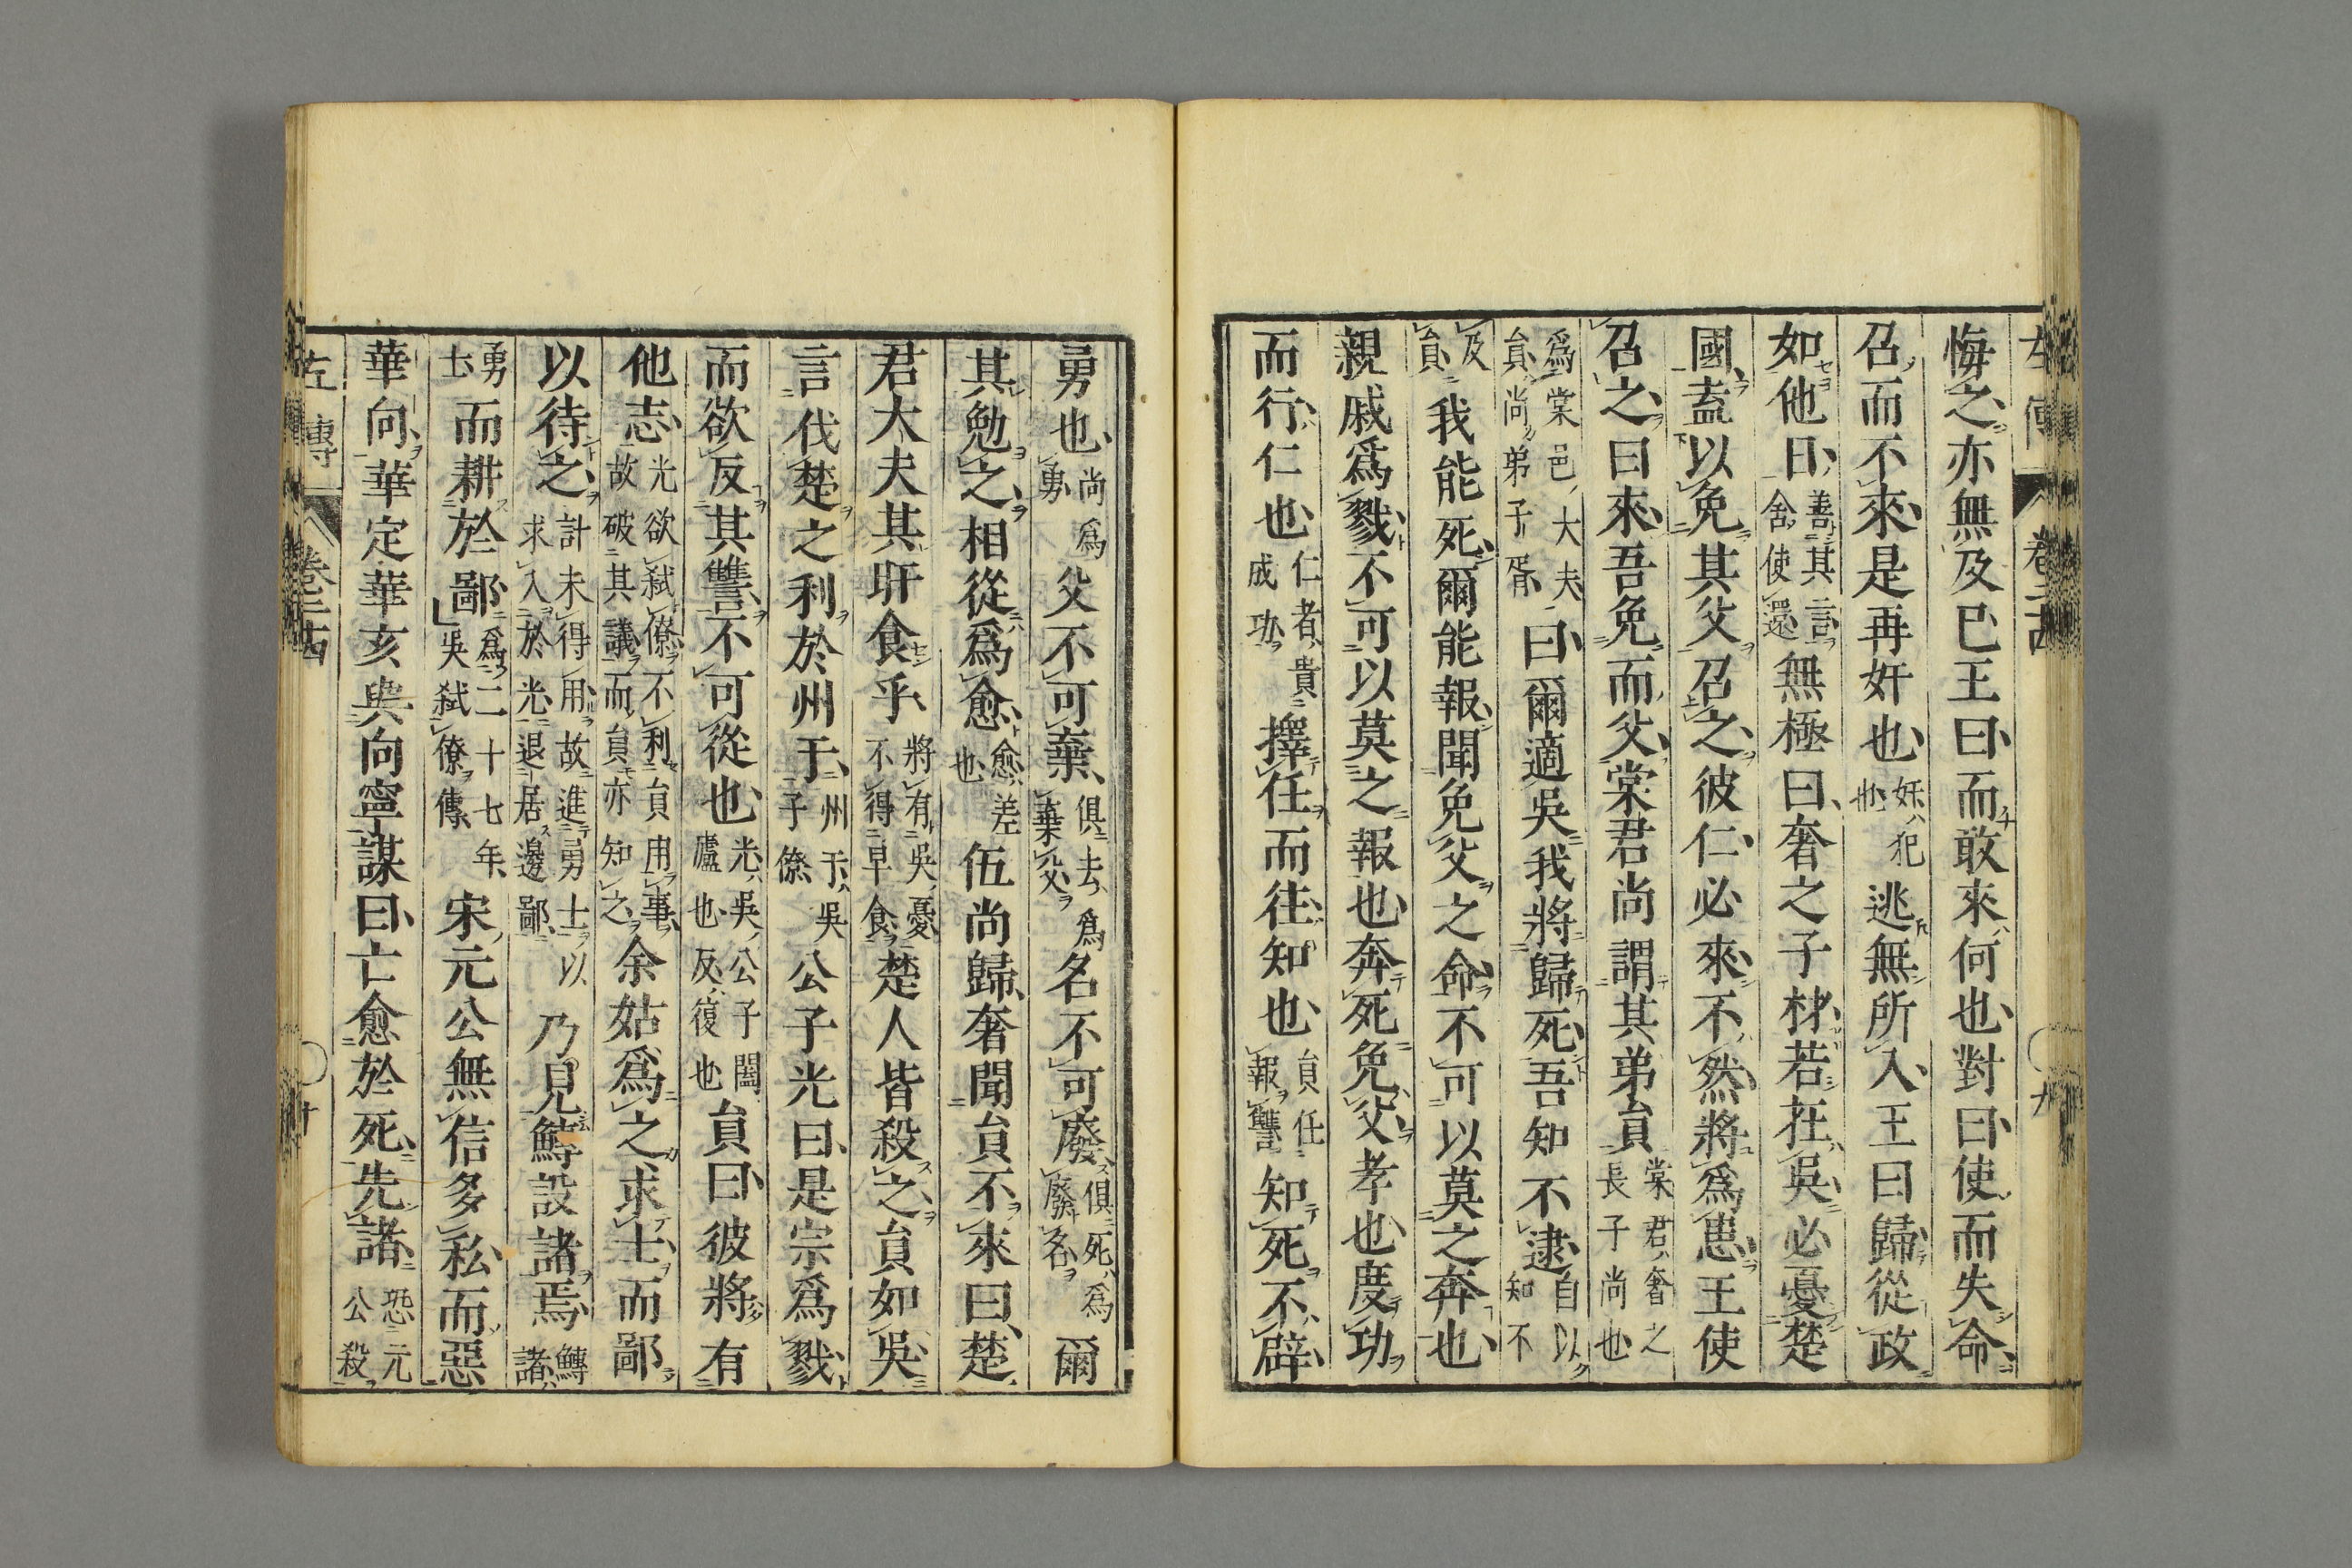 悔之亦無及已王曰而敢來何也對曰使而失命
召而不來是再奸也奸犯也逃無所入王曰歸從政
如他日善其言舍使還無極曰奢之子材若在吳必憂楚
國盍以免其父召之彼仁必來不然將爲患王使
召之曰來吾免而父棠君尚謂其弟員棠君奢之長子尚也
爲棠邑大夫員尚弟子胥曰爾適吳我將歸死吾知不逮自以知不
及員我能死爾能報聞免父之命不可以莫之奔也
親戚爲戮不可以莫之報也奔死免父孝也度功
而行仁也仁者貴成功擇任而往知也員任報讐知死不辟
勇也尚爲勇父不可棄俱去爲棄父名不可廢俱死爲廢名爾
其勉之相從爲愈愈差也伍尚歸奢聞員不來曰楚
君大夫其旰食乎將有吳憂不得早食楚人皆殺之員如吳
言伐楚之利於州于州于吳子僚公子光曰是宗爲戮
而欲反其讐不可從也光吳公子闔廬也反復也員曰彼將有
他志光欲弑僚不利員用事故破其議而員亦知之余姑爲之求士而鄙
以待之計未得用故進勇士以求入於光退居邊鄙乃見鱄設諸焉鱄諸
勇士而耕於鄙爲二十七年吳弑僚傳宋元公無信多私而惡
華向華定華亥與向寧謀曰亡愈於死先諸恐元公殺
左傳 卷二十四 十